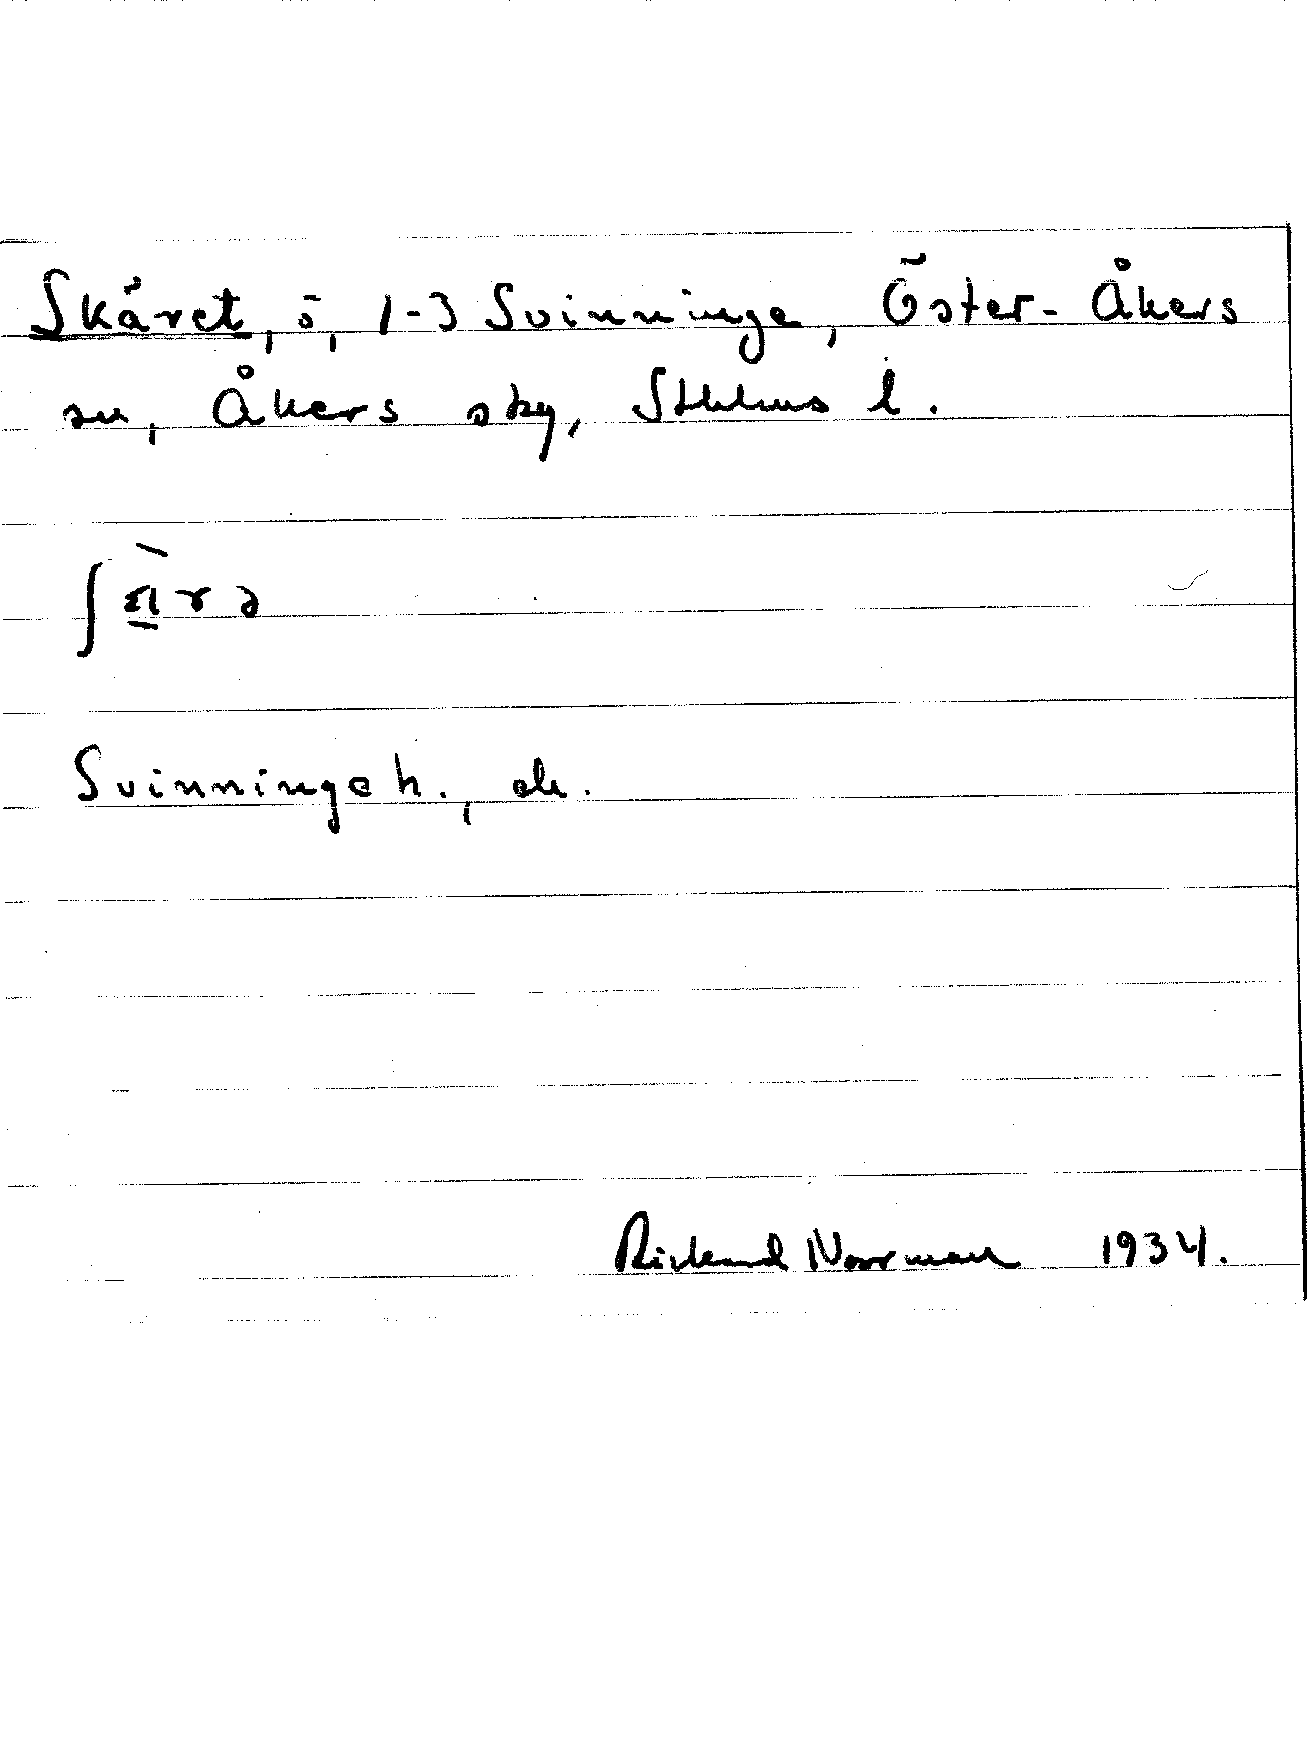 Skäret, ö, 1-3 Svinninge, Öster-Åkers
sn, Åkers sky, Sthlms l.
Svinningeh., ek.
Rickard Norrman 1934.